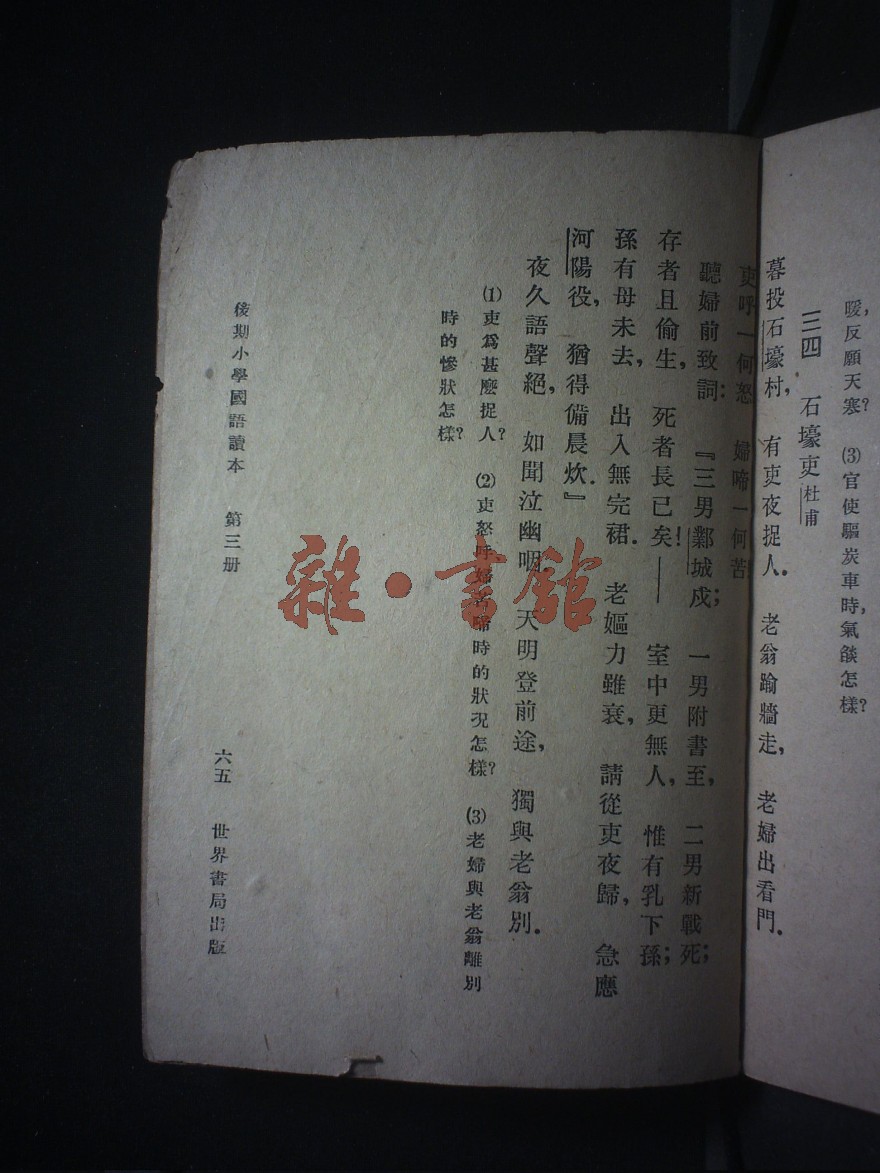 暖，反願天寒？　(3)官使驅炭車時，氣燄怎樣？
三四　石壕吏　杜甫
暮投石壕村，　有吏夜捉人．　老翁踰牆走，　老婦出看門．
吏呼一何怒　婦啼一何苦
聽婦前致詞：　『三男鄴城戍；　一男附書至，　二男新戰死；
存者且偷生，　死者長已矣！——　室中更無人，　惟有乳下孫；
孫有母未去，　出入無完裙．　老嫗力雖衰，　請從吏夜歸，　急應
河陽役，　猶得備晨炊．』
夜久語聲絕，　如聞泣幽咽　天明登前途，　獨與老翁別．
(1)吏爲甚麼捉人？　(2)吏怒呼婦啼時的狀況怎樣？　(3)老婦與老翁離別
時的慘狀怎樣？
後期小學國語讀本　第三册　六五　世界書局出版
雜·書館